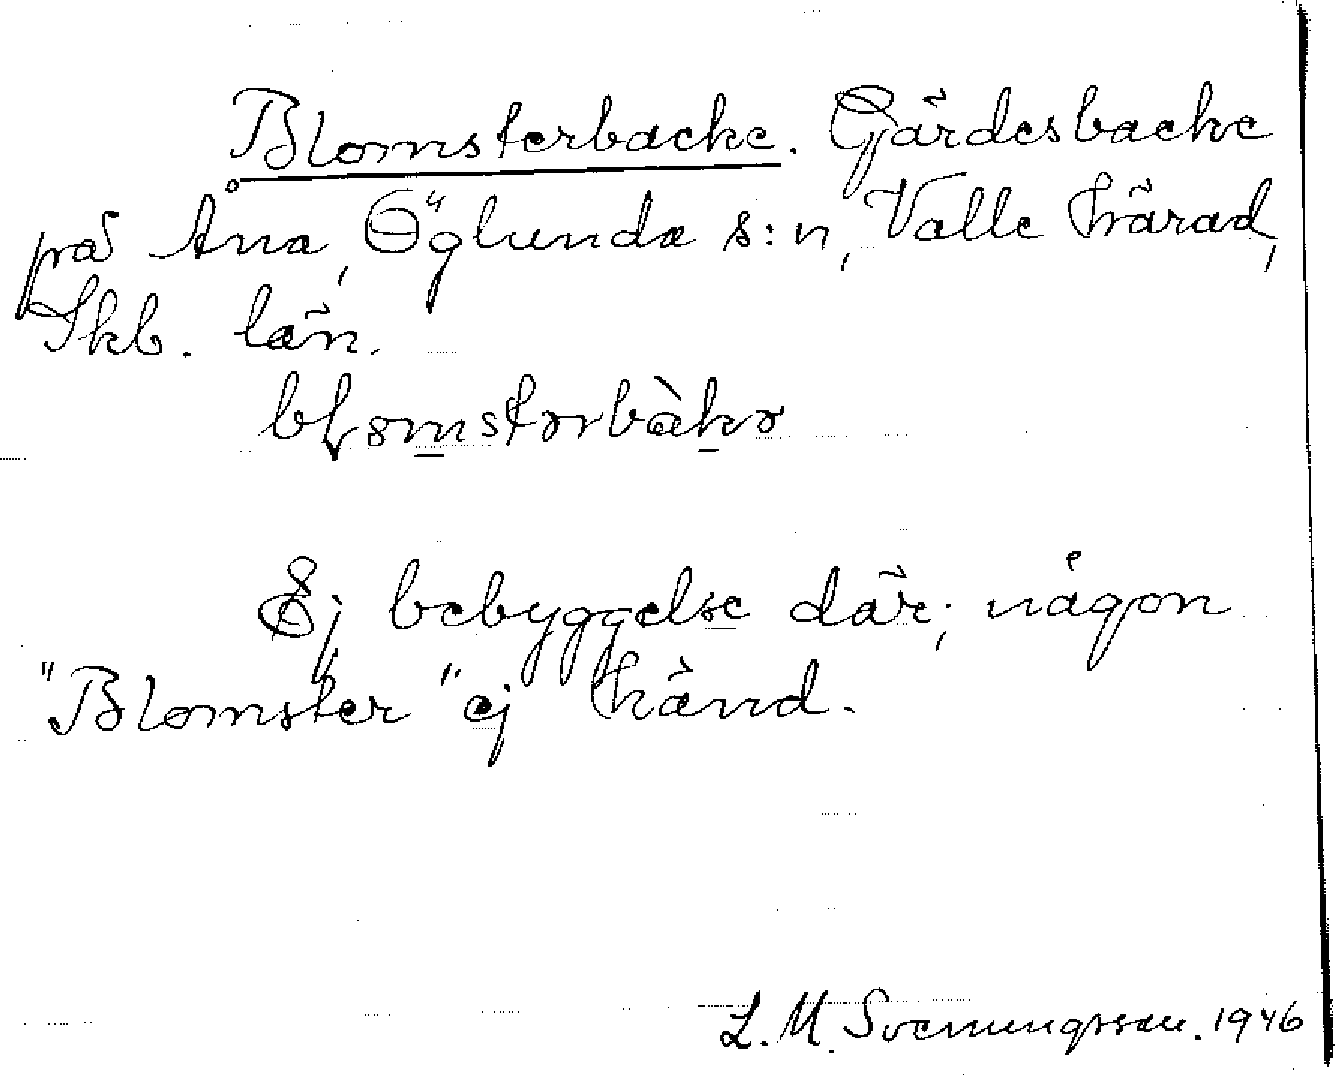 Blomsterbacke. Gärdesbacke
på Åna, Öglunda s:n, Valle härad,
Skb. län.
Ej bebyggelse där; någon
"Blomster" ej känd.
L. M. Svenungsson. 1946